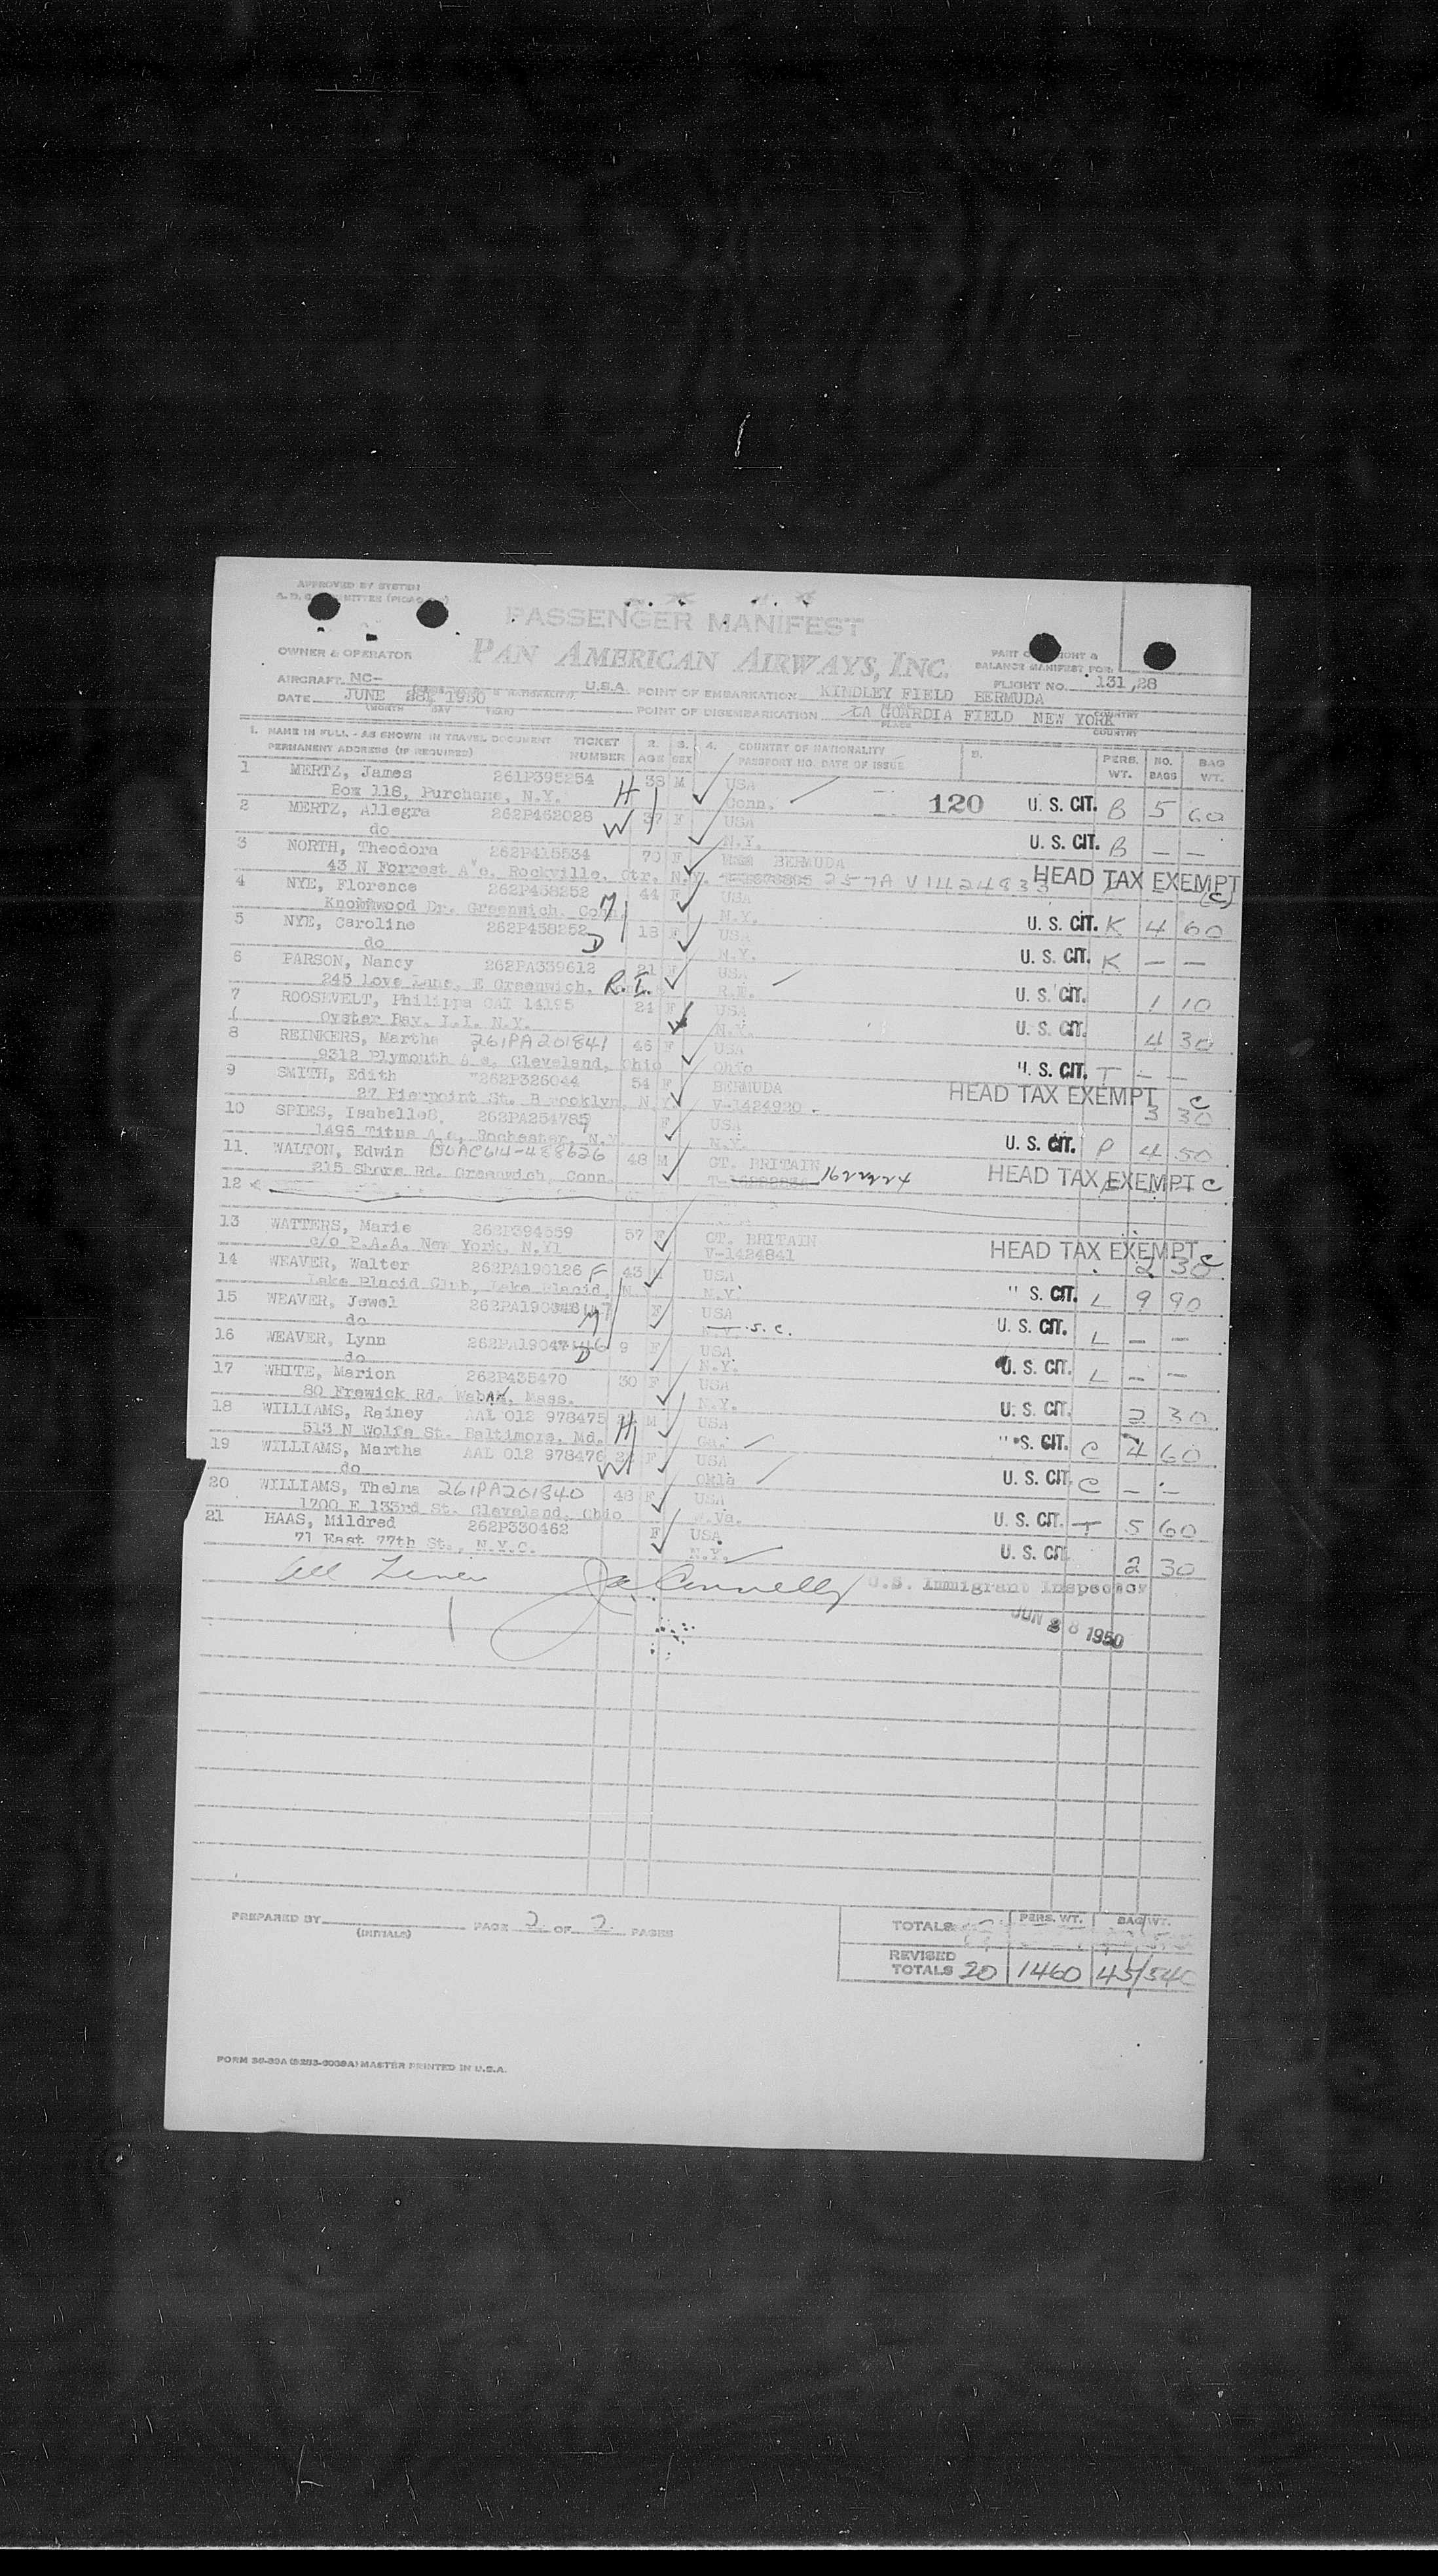 APPROVED BY SYSTEM
PASSENGER MANIFEST
OWNER & OPERATOR PAN AMERICAN AIRWAYS, INC.
BALANCE MANIFEST FOR:
FLIGHT NO. 131,28
AIRCRAFT NC- U.S.A. POINT OF EMBARKATION KINDLEY FIELD BERMUDA
DATE JUNE 28, 1950 POINT OF DISEMBARKATION LA GUARDIA FIELD NEW YORK
(MONTH DAY YEAR) PLACE COUNTRY
1. NAME IN FULL - AS SHOWN IN TRAVEL DOCUMENT TICKET 2. 3. 4. COUNTRY OF NATIONALITY 5. PERS. NO. BAG
PERMANENT ADDRESS (IF REQUIRED) NUMBER AGE SEX PASSPORT NO. DATE OF ISSUE WT. BAGS WT.
1 MERTZ, James 261P395254 38 M USA
Box 118, Purchane, N.Y. H Conn. 120 U. S. CIT. B 5 60
2 MERTZ, Allegra 262P462028 37 F USA
do W N.Y. U. S. CIT. B — —
3 NORTH, Theodora 262P415534 70 F BERMUDA
43 N Forrest A e. Rockville, Ctr, N.Y. HEAD TAX EXEMPT C
4 NYE, Florence 262P458252 44 F USA
Knollwood Dr. Greenwich, Conn. M N.Y. U. S. CIT. K 4 60
5 NYE, Caroline 262P458252 18 F USA
do D N.Y. U. S. CIT. K — —
6 PARSON, Nancy 262PA339612 21 F USA
245 Love Lane, E Greenwich, R.I. R.I. U. S. CIT. 1 10
7 ROOSEVELT, Philippa CAI 14195 24 F USA
Oyster Bay, L.I. N.Y. N.Y. U. S. CIT. 4 30
8 REINKERS, Martha 261PA201841 46 F USA
9312 Plymouth A e, Cleveland, Ohio Ohio U. S. CIT. T — —
9 SMITH, Edith 262P326044 54 F BERMUDA
27 Pierpoint St. Brooklyn, N.Y. V-1424920 HEAD TAX EXEMPT C 3 30
10 SPIES, Isabelle 262PA254785 F USA
1495 Titus A e, Rochester, N.Y. N.Y. U. S. CIT. P 4 50
11. WALTON, Edwin BOAC614-488626 48 M GT. BRITAIN
215 Shore Rd. Greenwich, Conn. HEAD TAX EXEMPT C
12
13 WATTERS, Marie 262P394559 57 F GT. BRITAIN
c/o P.A.A. New York, N.Y. V-1424841 HEAD TAX EXEMPT C 2 30
14 WEAVER, Walter 262PA190126 F 43 M USA
Lake Placid Club, Lake Placid, N.Y. N.Y. S. CIT. L 9 90
15 WEAVER, Jewel F USA
do M S.C. U. S. CIT. L — —
16 WEAVER, Lynn 9 F USA
do D N.Y. U. S. CIT. L — —
17 WHITE, Marion 262P435470 30 F USA
80 Frewick Rd. Waban, Mass. N.Y. U. S. CIT. 2 30
18 WILLIAMS, Rainey AAL 012 978475 M USA
513 N Wolfe St. Baltimore, Md. H Ga. S. CIT. C 4 60
19 WILLIAMS, Martha AAL 012 978476 F USA
do W Okla U. S. CIT. C — —
20 WILLIAMS, Thelma 261PA201840 48 F USA
1700 E 133rd St. Cleveland, Ohio W.Va. U. S. CIT. T 5 60
21 HAAS, Mildred 262P330462 F USA
71 East 77th St., N.Y.C. N.Y. U. S. CIT. 2 30
U.S. Immigrant Inspector
JUN 28 1950
PREPARED BY PAGE 2 OF 2 PAGES
(INITIALS)
TOTALS PERS. WT. BAG WT.
REVISED
TOTALS 20 1460 45/540
MASTER PRINTED IN U.S.A.